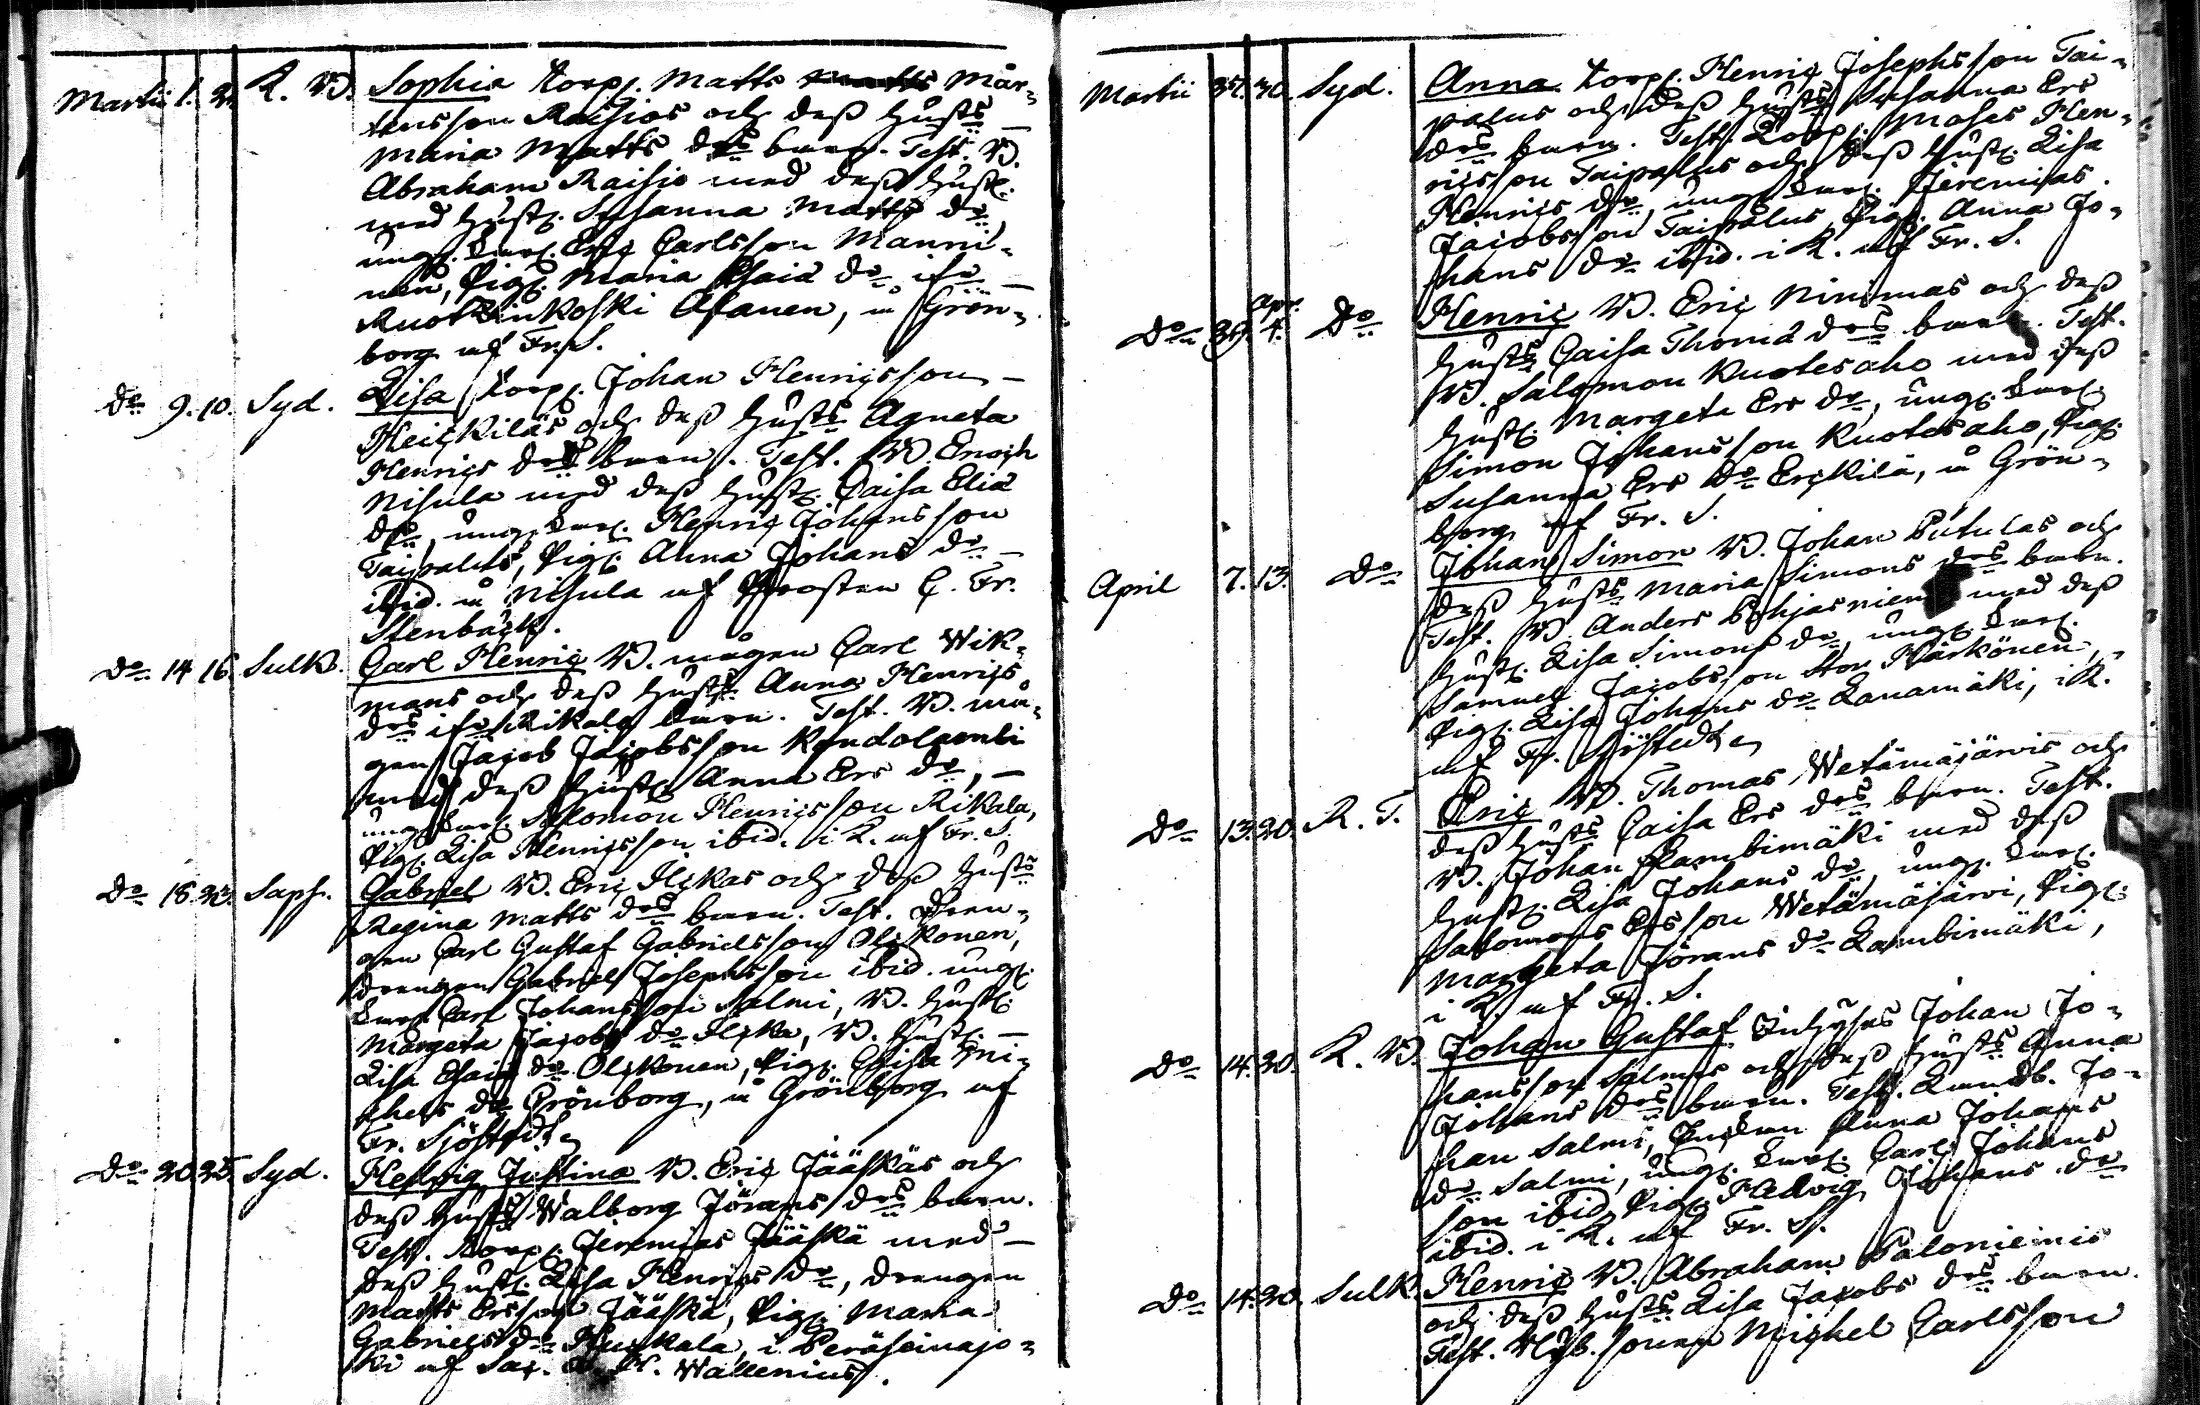 Martii 1. 2. K. W. Sophia Torp. Matts Mår-
tensson Raisios och deß hust:s
Maria Matts d:rs barn. Test. B.
Abraham Raisio med deß hust.
med hust. Susanna Matts d:r
ungk. Carlsson Manni-
nen, Pig. Maria Esaiæ d:r
Ruotzinkoski Alanen, i Grön-
borg af Fr. S.
D:o 9. 10. Syd. Lisa Torp. Johan Henricsson
Heickiläs och deß hust:s Agneta
Henrics d:rs barn. Test. B. Enoch
Nisula med deß hust. Caisa Eliæ
d:r, ung. Henric Johansson
Taipalus, Pig. Anna Johans d:r
ibid. i Nisula af Prosten C. Fr.
Stenbäck.
D:o 14 16. Sulk. Carl Henric B. mågen Carl Wik-
mans och deß hust:s Anna Henrics
d:rs Rikala barn. Test. B. må-
gen Jacob Jacobsson Kondolambi
med deß hust. Anna Ers d:r,
ung. Salomon Henricsson Rikala,
Pig. Lisa Henricsson ibid. i K. af Fr. S.
D:o 18. 23. Saps. Gabriel B. Eric Ilckas och deß hust:s
Regina Matts d:rs barn. Test. Dren-
gen Carl Gustaf Gabrielsson Olckonen,
Drengen Gabriel Josephsson ibid. ungk.
Carl Johansson Salmi, B. hust.
Margeta Jacobs d:r Ilcka, B. hust.
Lisa Esaiæ d:r Olckonen, Pig. Caisa Mi-
chels d:r Grönborg, i Grönborg af
Fr. Sjöstedt
D:o 20. 25. Syd. Hedvig Justina B. Eric Jääskäs och
deß hust:s Walborg Jörans d:rs barn.
Test. Torp. Jeremias Jääskä med
deß hust. Lisa Henrics d:r, drengen
Matts Ersson Jääskä, Pig. Maria
Gabriels d:r Kuckala, i Peräseinäjo-
ki af Sac. Wallenius.
Martii 27. 30. Syd. Anna Torp. Henric Josephsson Tai-
palus och deß hust:s Susanna Ers
d:rs barn. Test. Torp. Moses Hen-
ricsson Taipalus och deß hust. Lisa
Henrics d:r, ungk. Jeremias
Jacobsson Taipalus, Pig. Anna Jo-
hans d:r ibid. i K. af Fr. S.
D:o 29. Apr. 4. D:o Henric B. Eric Ninimas och deß
hust:s Caisa Thomæ d:rs barn. Test.
B. Salomon Kuotesaho med deß
hust. Margeta Ers d:r, ungk.
Simon Johansson Kuotesaho, Pig.
Susanna Ers d:r Erckilä, i Grön-
borg af Fr. S.
April 7. 13. D:o Johan Simon B. Johan Putulas och
deß hust:s Maria Simons d:rs barn.
Test. B. Anders Pohjasniemi med deß
hust. Lisa Simons d:r, ungk.
Samuel Jacobsson Stor Härkönen,
Pig. Lisa Johans d:r Lanamäki, i K.
af Fr. Sjöstedt
D:o 13. 20. R. T. Eric B. Thomas Wetämäjärvis och
deß hust:s Caisa Ers d:rs barn. Test.
B. Johan Lambimäki med deß
hust. Lisa Johans d:r, ungk.
Salomon Ersson Wetämäjärvi, Pig.
Margeta Jörans d:r Lambimäki,
i K. af Fr. S.
D:o 14. 20. K. W. Johan Gustaf Inhyses Johan Jo-
hansson Salmis och deß hust:s Anna
Johans d:rs barn. Test. Landb. Jo-
han Salmi, Enkan Anna Johans
d:r Salmi, ungk. Carl Johans
son ibid. Pig. Hedvig Johans d:r
ibid. i K. af Fr. S.
D:o 14. 20. Sulk. Henric B. Abraham Paloniemis
och deß hust:s Lisa Jacobs d:rs barn.
Test. Michel Carlsson